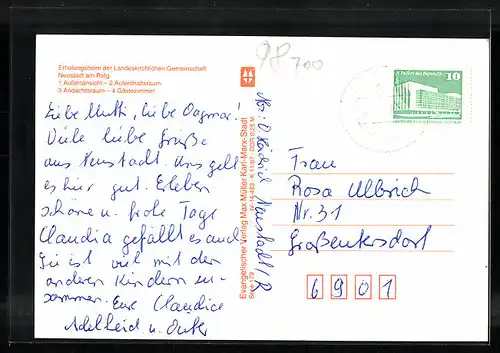 98 700
Erholungsheim der Landeskirchlichen Gemeinschaft
Neustadt am Rstg.
1 Außenansicht – 2 Aufenthaltsraum
3 Andachtsraum – 4 Gästezimmer
Liebe Mutti, liebe Dagmar!
Viele liebe Grüße
aus Neustadt. Uns geht
es hier gut. Erleben
schöne u. frohe Tage
Claudia gefällt es auch
Sie ist viel mit den
anderen Kindern zu-
sammen. Eure Claudia
Adelheid u.
Evangelischer Verlag Max Müller Karl-Marx-Stadt
Neustadt/R
10
Frau
Rosa Ullbrich
Nr. 31
Großenkersdorf
6901